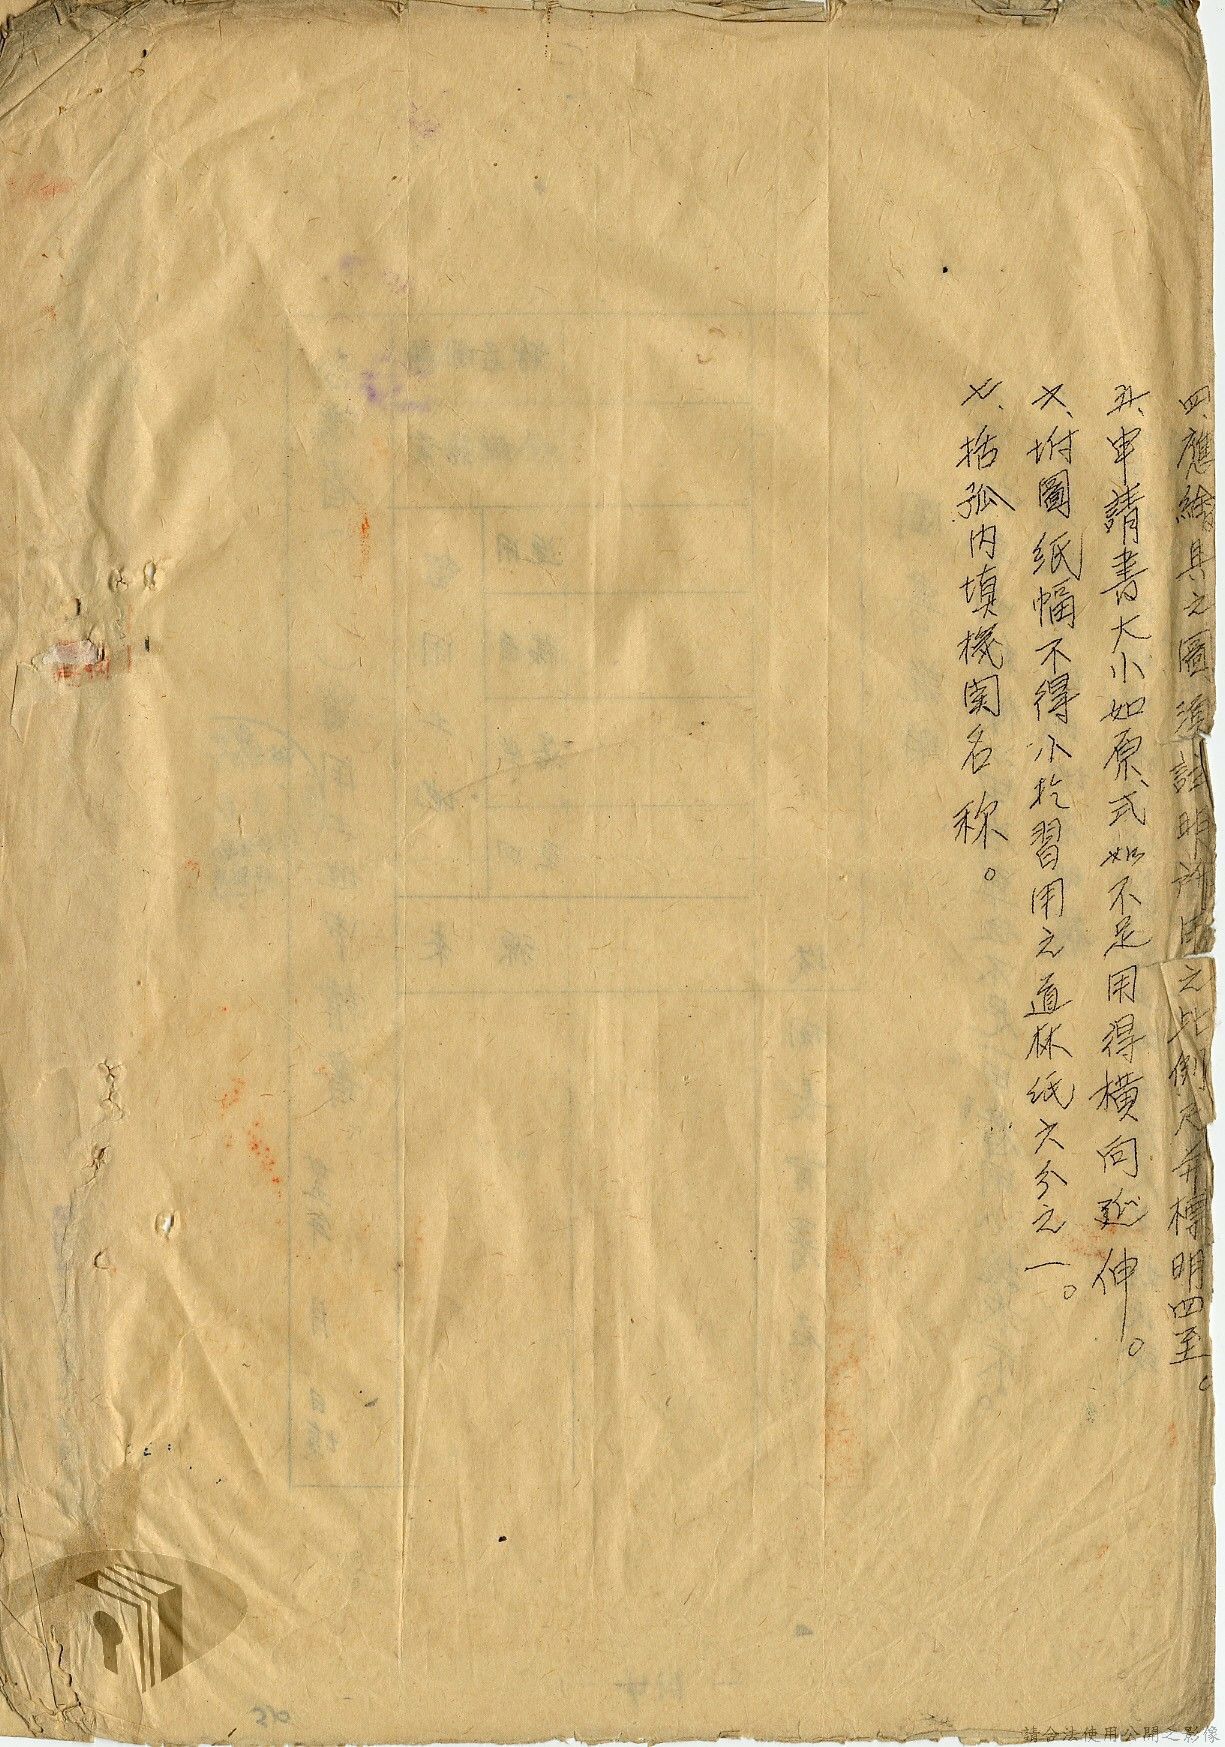 四、應繪具之圖須註明所用之比例尺并標明四至。
五、申請書大小如原式如不足用得橫向延伸。
六、坿圖紙幅不得小於習用之道林紙六分之一。
七、括弧内填機関名称。
請合法使用公開之影像